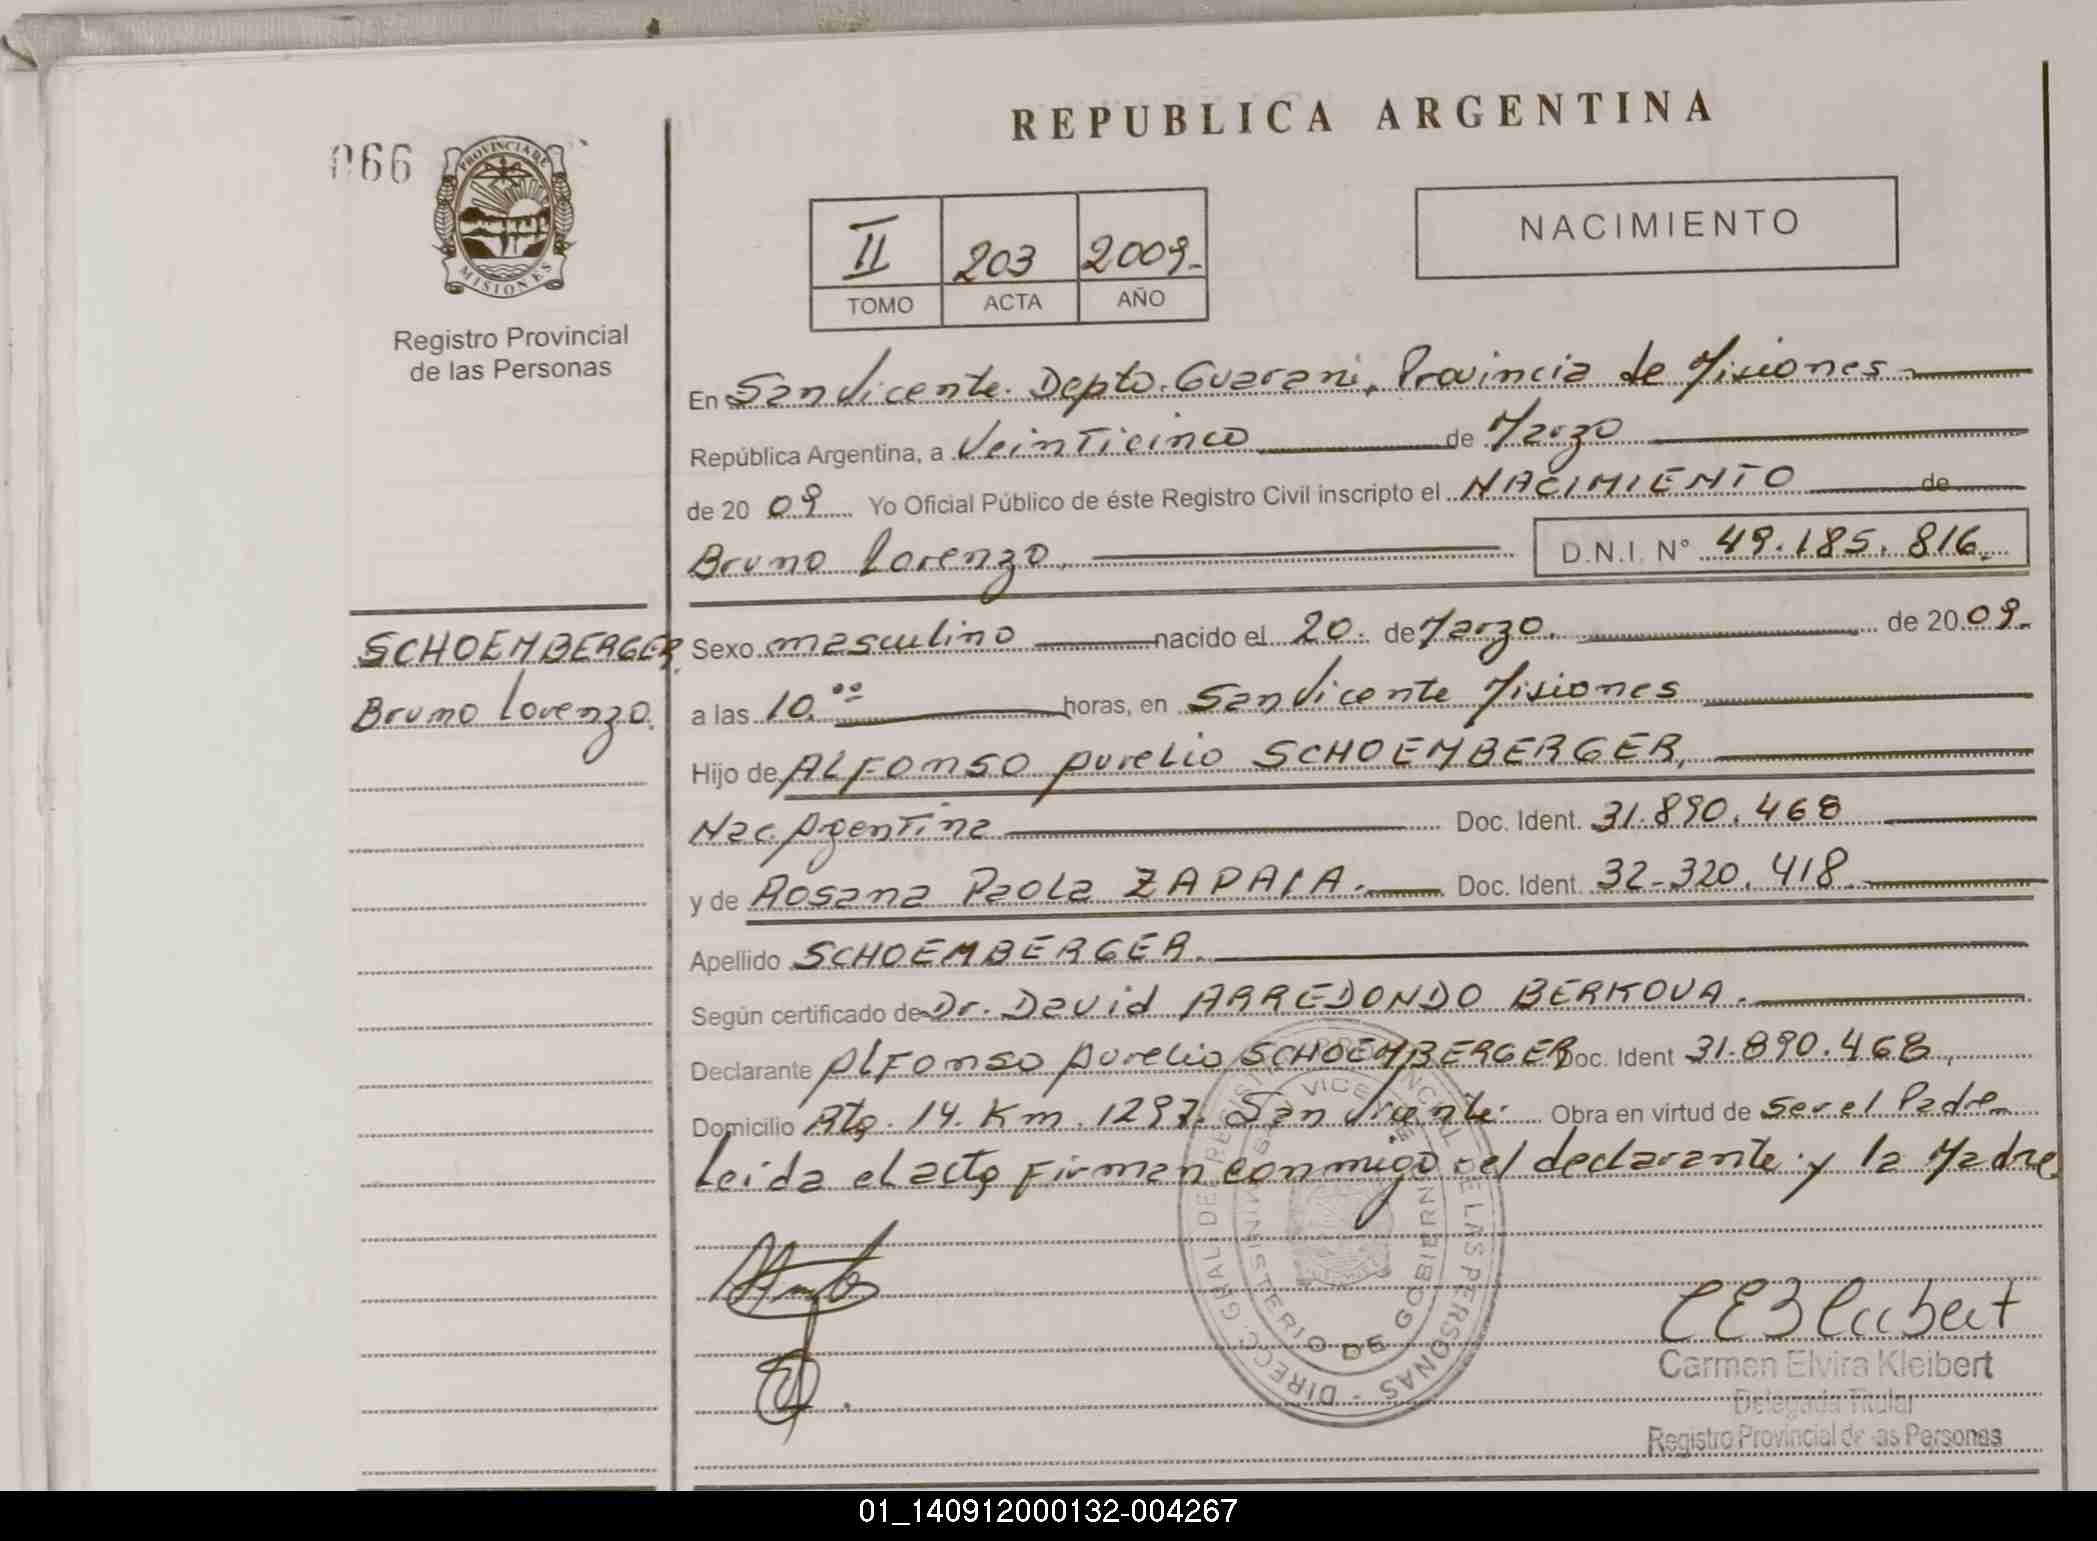 REPUBLICA ARGENTINA
066
PROVINCIA DE
MISIONES
Registro Provincial
de las Personas
II 203 2009.-
TOMO ACTA AÑO
NACIMIENTO
En San Vicente. Depto. Guarani, Provincia de Misiones
República Argentina, a Veinticinco de Marzo
de 20 09 Yo Oficial Público de éste Registro Civil inscripto el NACIMIENTO de
Bruno Lorenzo. D.N.I. N° 49.185.816.
SCHOEMBERGER
Bruno Lorenzo.
Sexo masculino nacido el 20. de Marzo. de 20 09.
a las 10.ºº horas, en San Vicente Misiones
Hijo de ALFONSO Aurelio SCHOEMBERGER,
Nac. Argentina Doc. Ident. 31.890.468
y de Rosana Paola Doc. Ident. 32-320.418.
Apellido SCHOEMBERGER.
Según certificado de Dr. David ARREDONDO BERKOVA.
Declarante Alfonso Aurelio SCHOEMBERGER Doc. Ident 31.890.468,
Domicilio Rta. 14. Km. 1297. San Vicente. Obra en virtud de ser el Padre
Leida el acta Firman conmigo el declarante y la Madre
DIRECC. GRAL DE REGISTRO PROVINCIAL DE LAS PERSONAS
MINISTERIO DE GOBIERNO
SAN VICENTE
Carmen Elvira Kleibert
Delegada Titular
Registro Provincial de las Personas
01_140912000132-004267